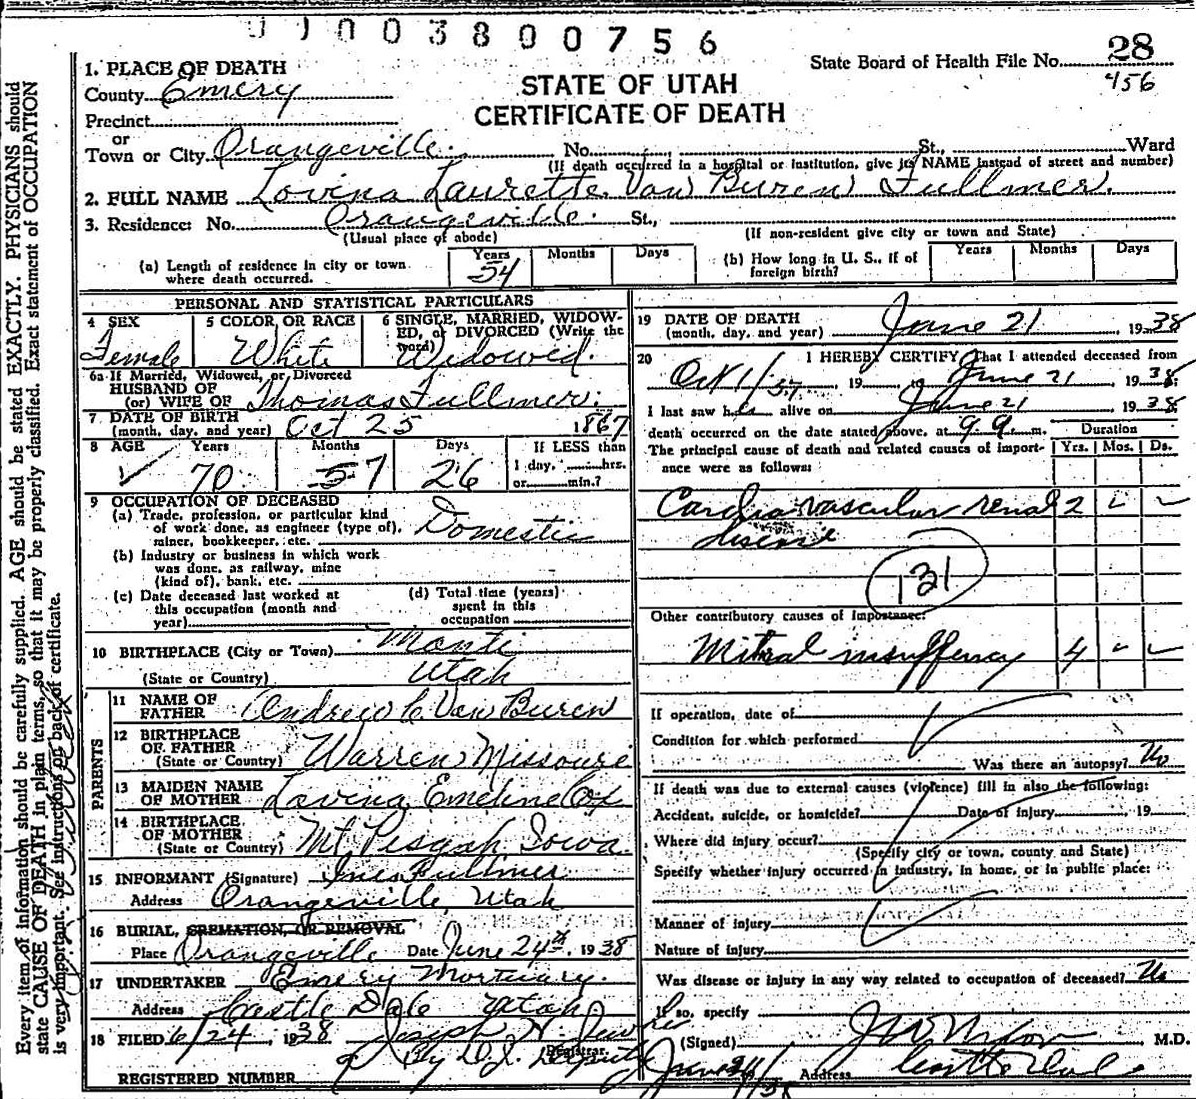 0003800756
State Board of Health File No. 28
456
STATE OF UTAH
CERTIFICATE OF DEATH
1. PLACE OF DEATH
County Emery
Precinct
or
Town or City Orangeville. No. St., Ward
(If death occurred in a hospital or institution, give its NAME instead of street and number)
2. FULL NAME Lovina Laurette Van Buren Fullmer.
3. Residence: No. Orangeville. St.,
(Usual place of abode) (If non-resident give city or town and State)
(a) Length of residence in city or town where death occurred. Years 54 Months Days
(b) How long in U. S., if of foreign birth? Years Months Days
PERSONAL AND STATISTICAL PARTICULARS
4 SEX Female
5 COLOR OR RACE White
6 SINGLE, MARRIED, WIDOWED, or DIVORCED (Write the word) Widowed.
6a If Married, Widowed, or Divorced
HUSBAND OF
(or) WIFE OF Thomas Fullmer.
7 DATE OF BIRTH
(month, day, and year) Oct 25 1867
8 AGE Years 70 Months 5 7 Days 26
If LESS than
1 day, hrs.
or min.?
9 OCCUPATION OF DECEASED
(a) Trade, profession, or particular kind
of work done, as engineer (type of),
miner, bookkeeper, etc. Domestic
(b) Industry or business in which work
was done, as railway, mine
(kind of), bank, etc.
(c) Date deceased last worked at
this occupation (month and
year)
(d) Total time (years)
spent in this
occupation
10 BIRTHPLACE (City or Town) Manti
(State or Country) Utah
PARENTS
11 NAME OF
FATHER Andrew C. Van Buren
12 BIRTHPLACE
OF FATHER
(State or Country) Warren Missouri
13 MAIDEN NAME
OF MOTHER Lavina Emeline Cox
14 BIRTHPLACE
OF MOTHER
(State or Country) Mt Pisgah Iowa.
15 INFORMANT (Signature) Fullmer
Address Orangeville, Utah
16 BURIAL, CREMATION, OR REMOVAL
Place Orangeville Date June 24th. 1938
17 UNDERTAKER Emery Mortuary.
Address Castle Dale Utah
18 FILED 6/24, 1938 Joseph H.
Registrar
By D.J. Deputy
REGISTERED NUMBER
19 DATE OF DEATH
(month, day, and year) June 21, 1938
20 I HEREBY CERTIFY, That I attended deceased from
Oct 1/37, 19 to June 21, 1938.
I last saw her alive on June 21 1938
death occurred on the date stated above, at 9 a. m.
Duration
Yrs. Mos. Ds.
The principal cause of death and related causes of importance were as follows:
Cardio vascular renal 2 - -
disease
131
Other contributory causes of importance:
Mitral insuffency 4 - -
If operation, date of
Condition for which performed
Was there an autopsy? No
If death was due to external causes (violence) fill in also the following:
Accident, suicide, or homicide? Date of injury, 19
Where did injury occur?
(Specify city or town, county and State)
Specify whether injury occurred in industry, in home, or in public place:
Manner of injury
Nature of injury
Was disease or injury in any way related to occupation of deceased? No
If so, specify
(Signed) , M.D.
June 24/38 Address Castle Dale
Every item of information should be carefully supplied. AGE should be stated EXACTLY. PHYSICIANS should
state CAUSE OF DEATH in plain terms, so that it may be properly classified. Exact statement of OCCUPATION
is very important. See instructions on back of certificate.